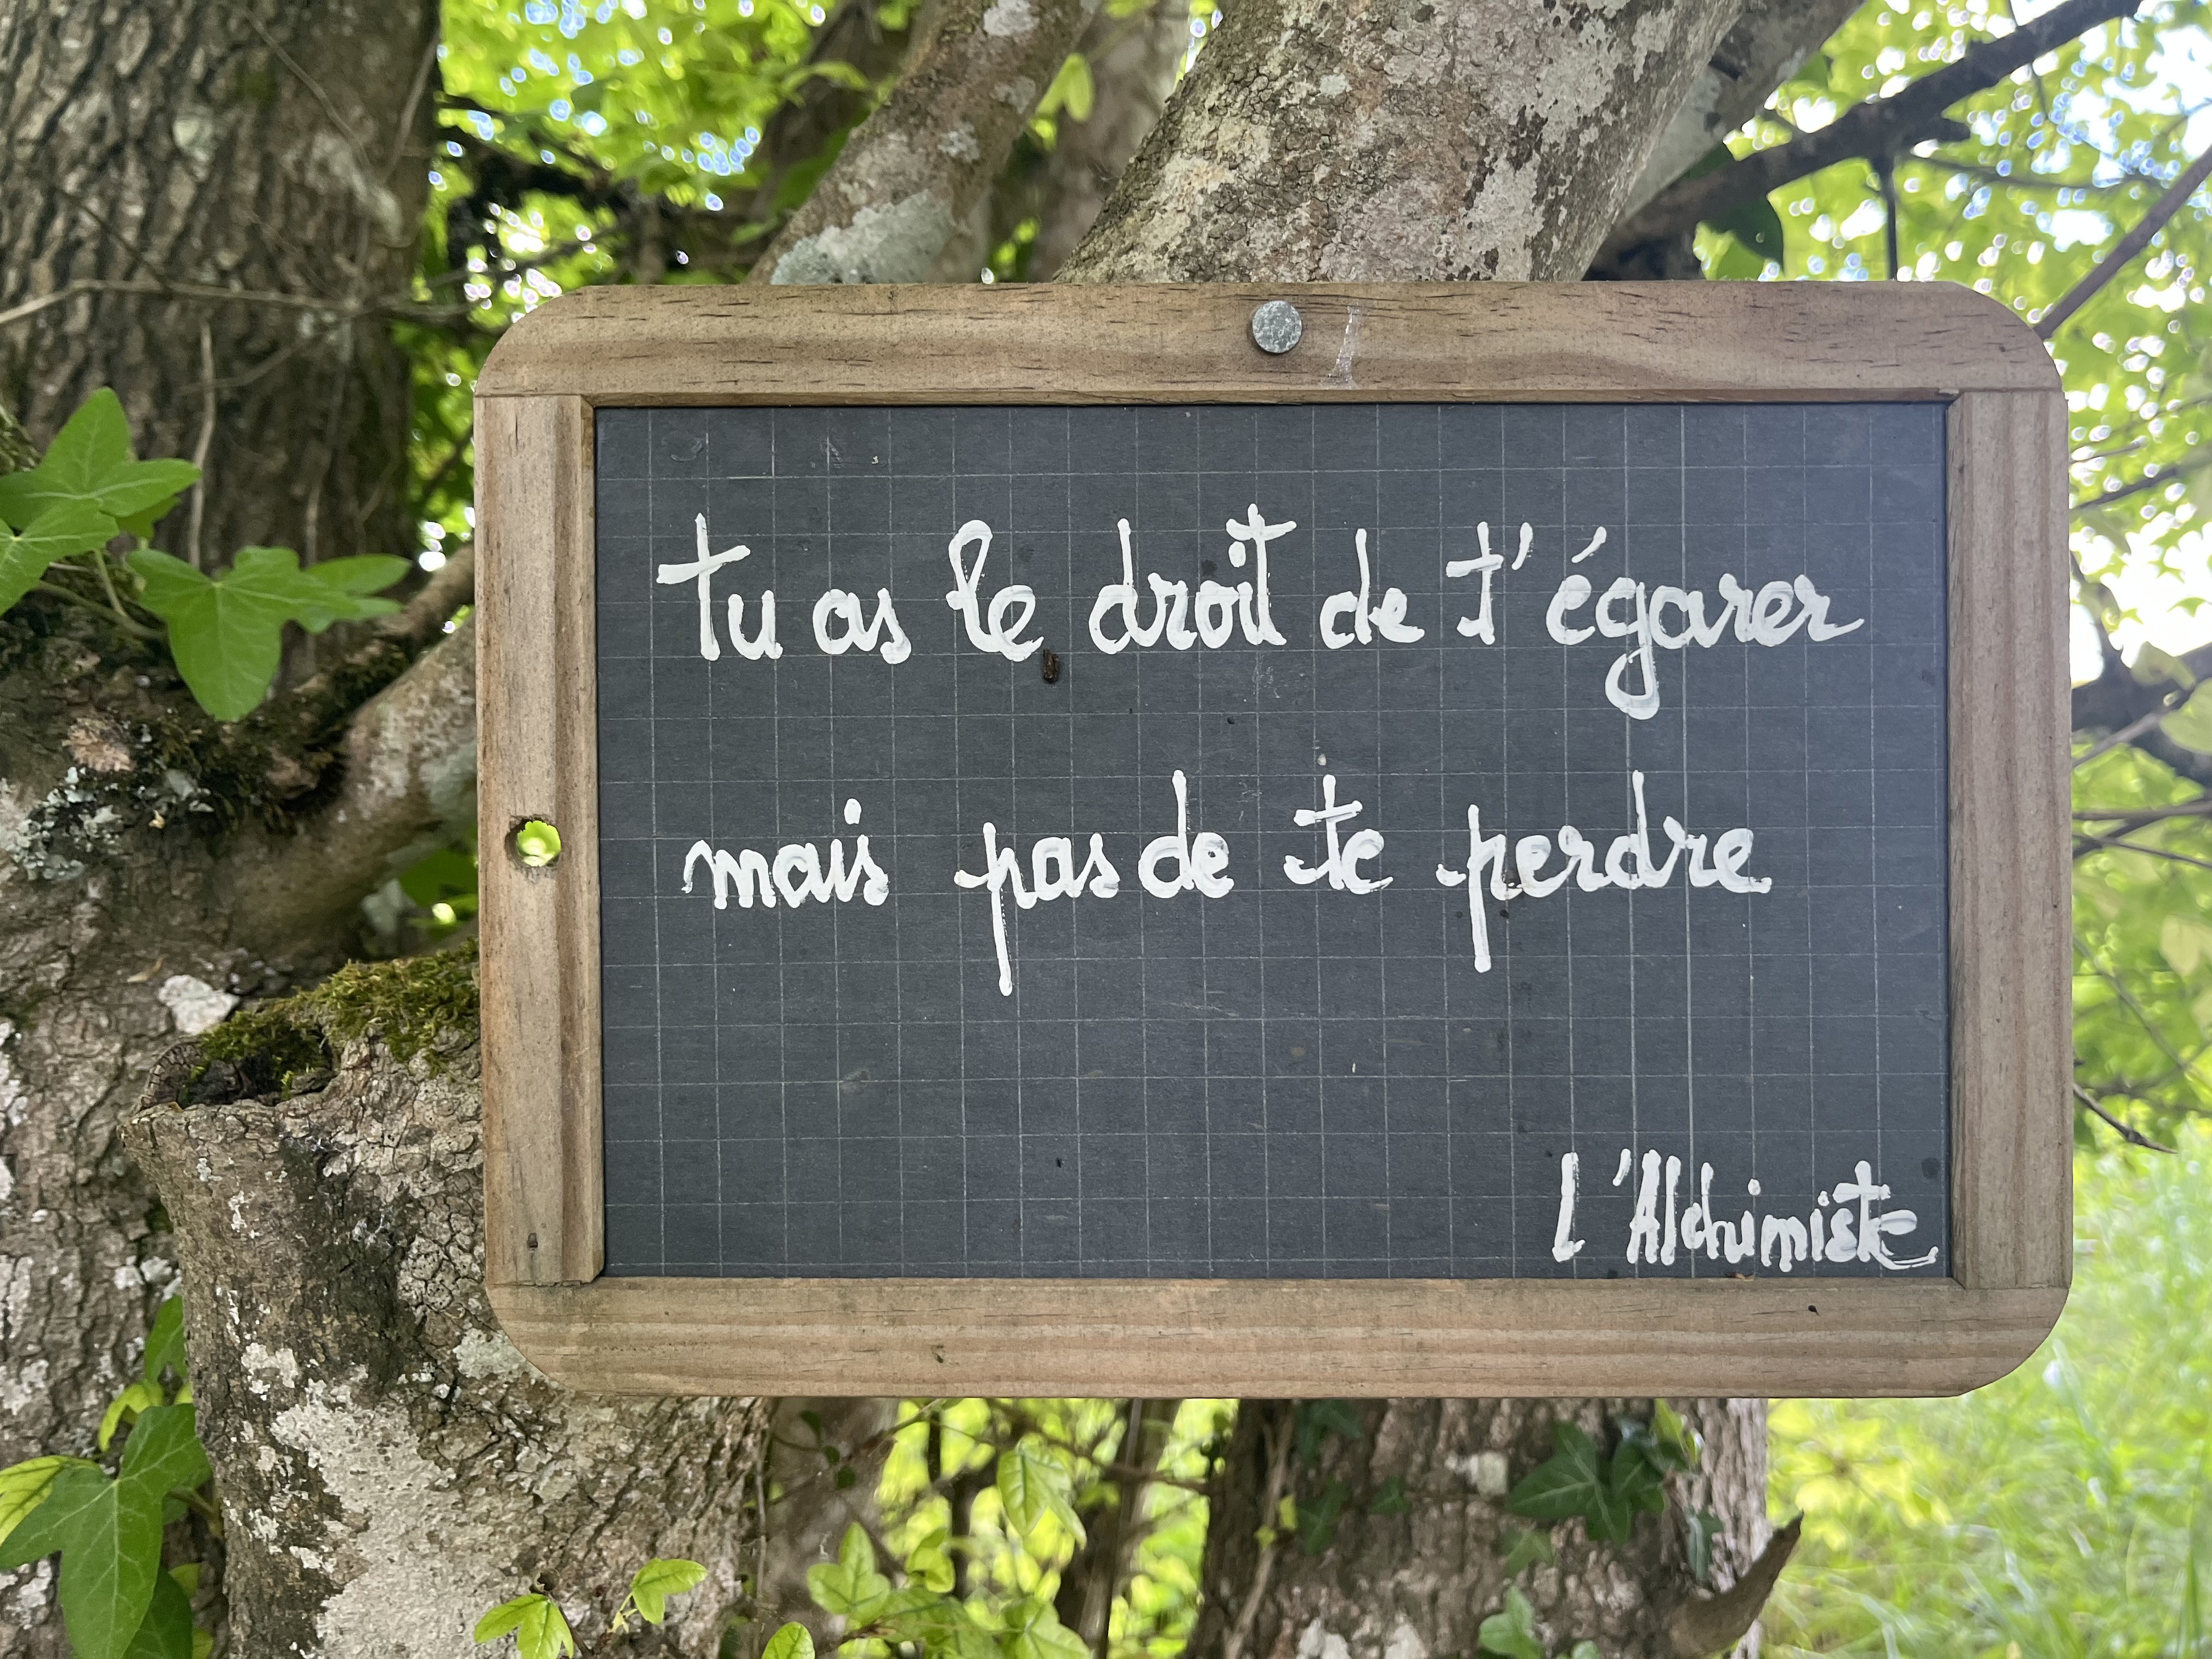 tu as le droit de t'égarer
mais pas de te perdre
l'Alchimiste